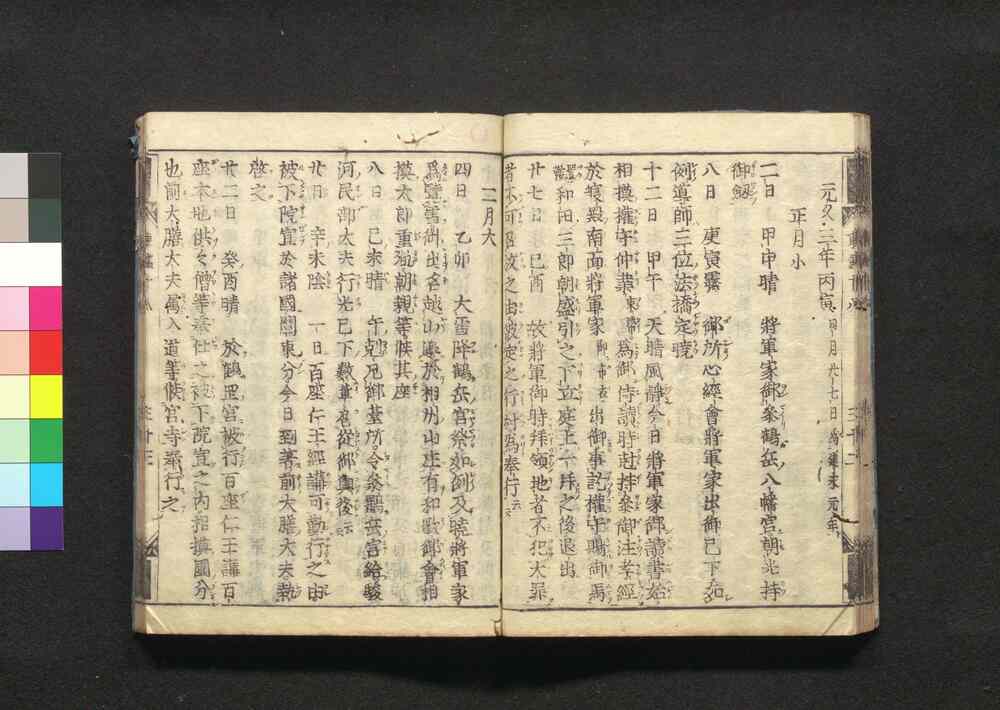 元久三年丙寅四月廿七日為建永元年
正月小
二日　甲申晴　將軍家御參鶴岳八幡宮朝光持
御劔
八日　庚寅霽　御所心經會將軍家出御已下如
例導師三位法橋定曉
十二日　甲午　天晴風靜今日將軍家御讀書始
相摸權守仲業束帶為御侍讀時尅持參御注孝經
於寢殿南面將軍家御布衣出御事訖權守賜御馬
置鞍和田三郎朝盛引之下立庭上一拜之後退出
廿七日　己酉　故將軍御時拜領地者不犯大罪
者不可召放之由被定之行村為奉行云云
二月大
四日　乙卯　大雪降鶴岳宮祭如例及晩將軍家
為覽雪御出名越山邊於相州山庄有和歌御會相
摸太郎重胤朝親等候其座
八日　己未晴　午剋尼御臺所令參鶴岳宮給駿
河民部大夫行光已下數輩扈從御輿後云云
廿日　辛未陰　一日百座仁王經講可勤行之由
被下院宣於諸國關東分今日到著前大膳大夫執
啓之
廿二日　癸酉晴　於鶴岳宮被行百座仁王講百
座本地供々僧等奉仕之被下院宣之内相摸國分
也前大膳大夫属入道等候宮寺奉行之